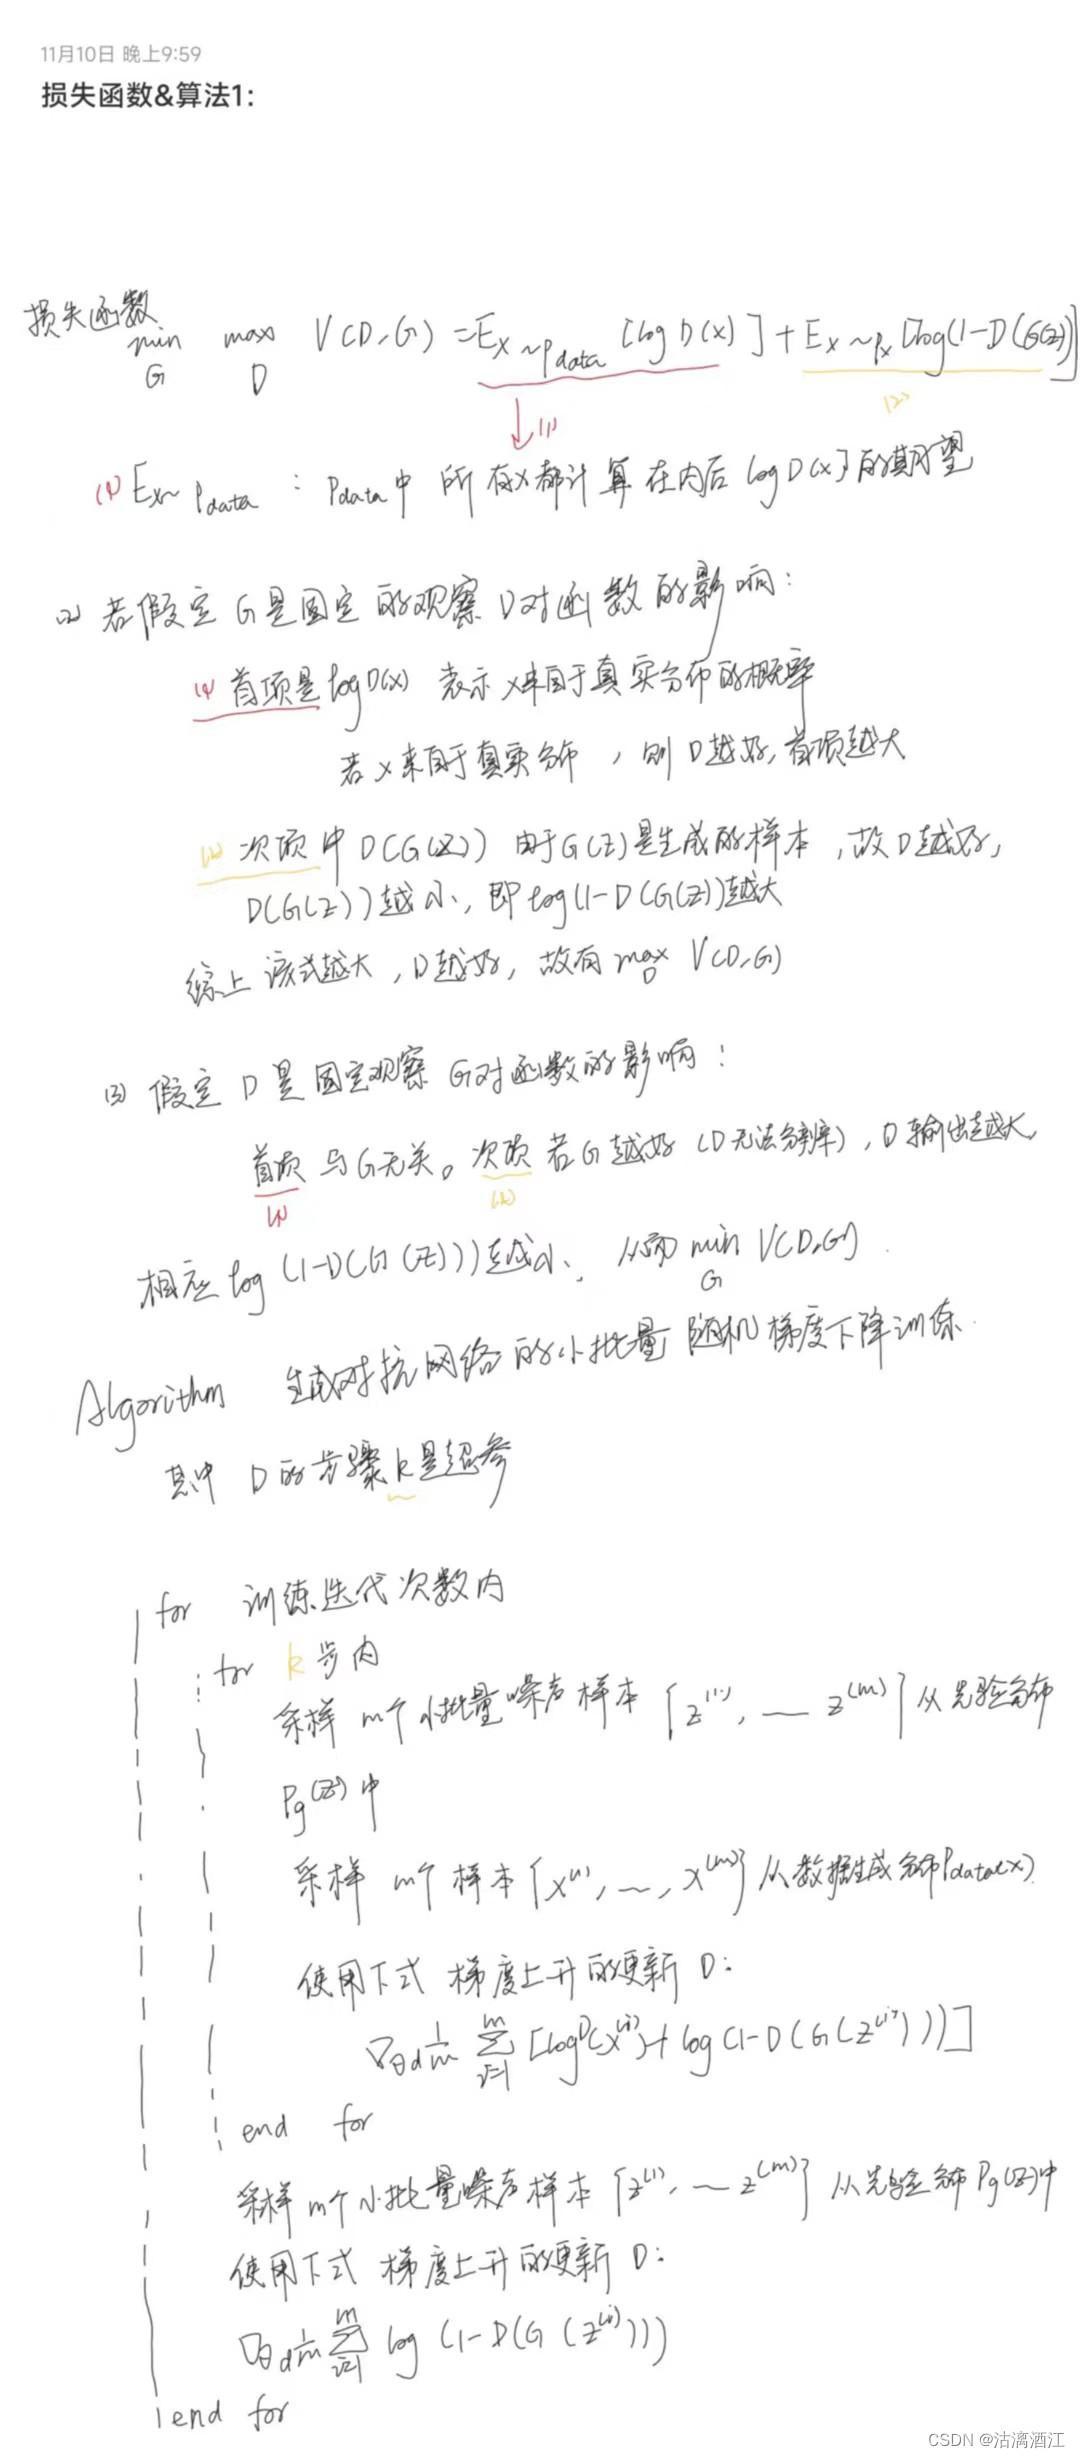 11月10日 晚上9:59
损失函数&算法1:
损失函数
min max V(D,G) = E x~pdata [log D(x)] + E x~px [log(1-D(G(z))]
G D
(1) (2)
(1) Ex~pdata : pdata中 所有x都计算在内后 log D(x)的期望
(2) 若假定 G是固定的观察 D对函数的影响:
(1) 首项是logD(x) 表示x来自于真实分布的概率
若x来自于真实分布,则 D越好,首项越大
(2) 次项中D(G(z)) 由于G(z)是生成的样本,故D越好,
D(G(z))越小,即log(1-D(G(z))越大
综上 该式越大,D越好,故有 max V(D,G)
D
(3) 假定 D是固定观察 G对函数的影响:
首项与G无关。次项若G越好(D无法分辨),D输出越大,
(1) (2)
相应log(1-D(G(z)))越小, 从而 min V(D,G)
G
Algorithm 生成对抗网络的小批量随机梯度下降训练.
其中 D的步骤k是超参
for 训练迭代次数内
for k步内
采样 m个小批量噪声样本{z^(1), — z^(m)}从先验分布
Pg(z)中
采样 m个样本{x^(1), —, x^(m)}从数据生成分布Pdata(x)
使用下式 梯度上升的更新 D:
∇θd 1/m Σ i=1 m [logD(x^(i))+ log(1-D(G(z^(i))))]
end for
采样m个小批量噪声样本{z^(1), — z^(m)}从先验分布Pg(z)中
使用下式 梯度上升的更新 D:
∇θd 1/m Σ i=1 m log(1-D(G(z^(i))))
end for
CSDN @沽漓酒江